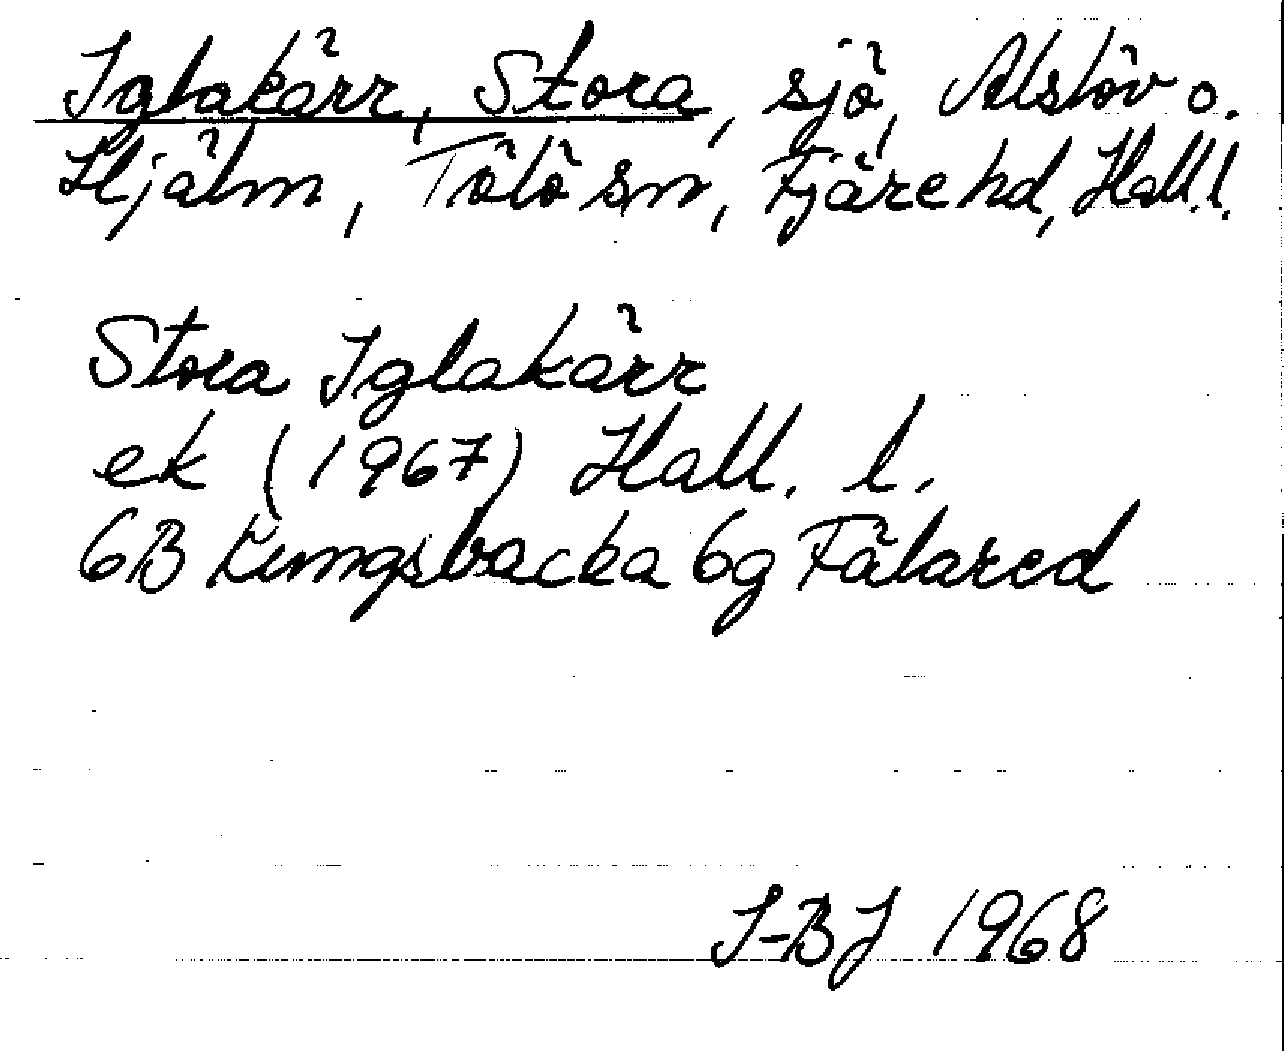 Iglakärr, Stora, sjö, Alslöv o.
Hjälm, Tölö sn, Fjäre hd, Hall.l.
Stora Iglakärr
ek (1967) Hall. l.
6B Kungsbacka 6g Fälared
I-BJ 1968